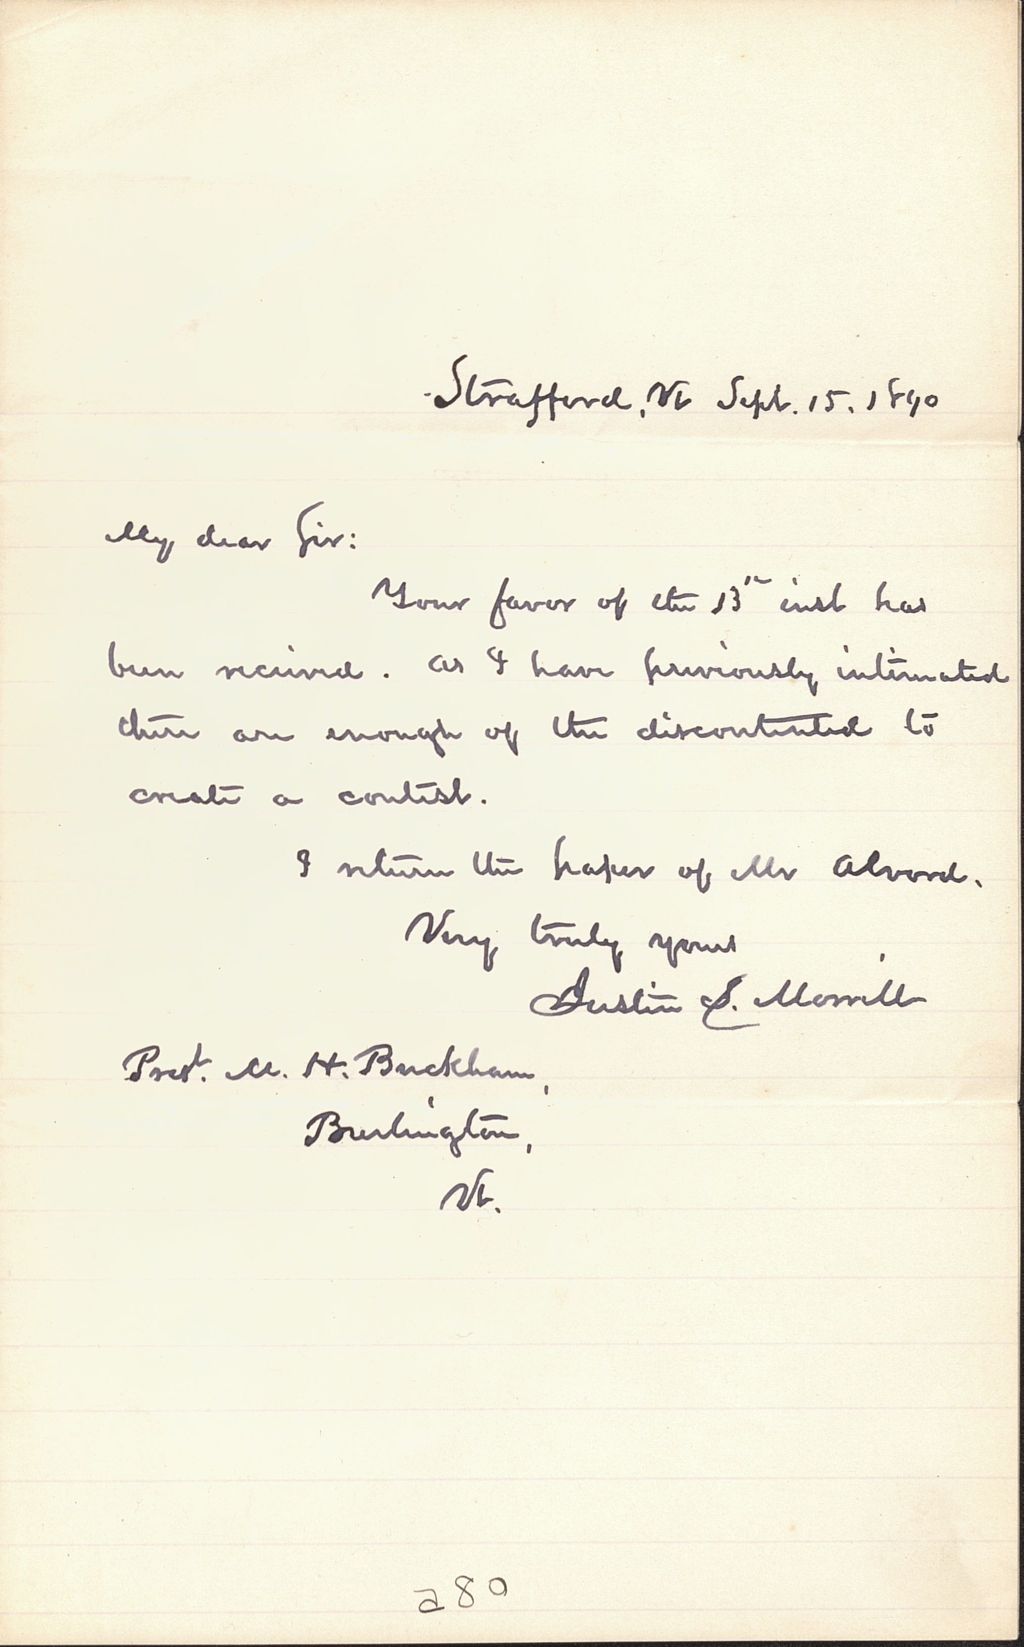 Strafford, Vt Sept. 15. 1890
My dear Sir:
Your favor of the 13th inst has
been received. As I have previously intimated
there are enough of the discontented to
create a contest.
I return the paper of Mr Alvord.
Very truly yours
Justin S. Morrill
Prest. M. H. Buckham,
Burlington,
Vt.
a80